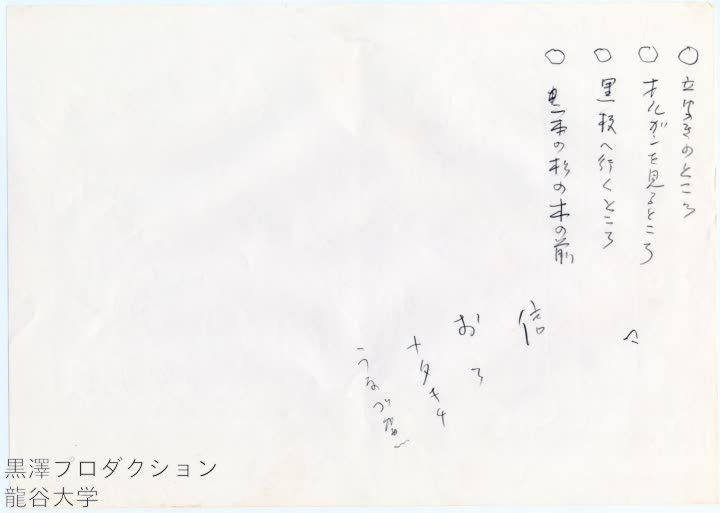 ○ 立ちきのところ
○ オルガンを見るところ
○ 黒板へ行くところ
○ 黒木の杉の木の前
へ
信
おろ
ナタキチ
黒澤プロダクション
龍谷大学